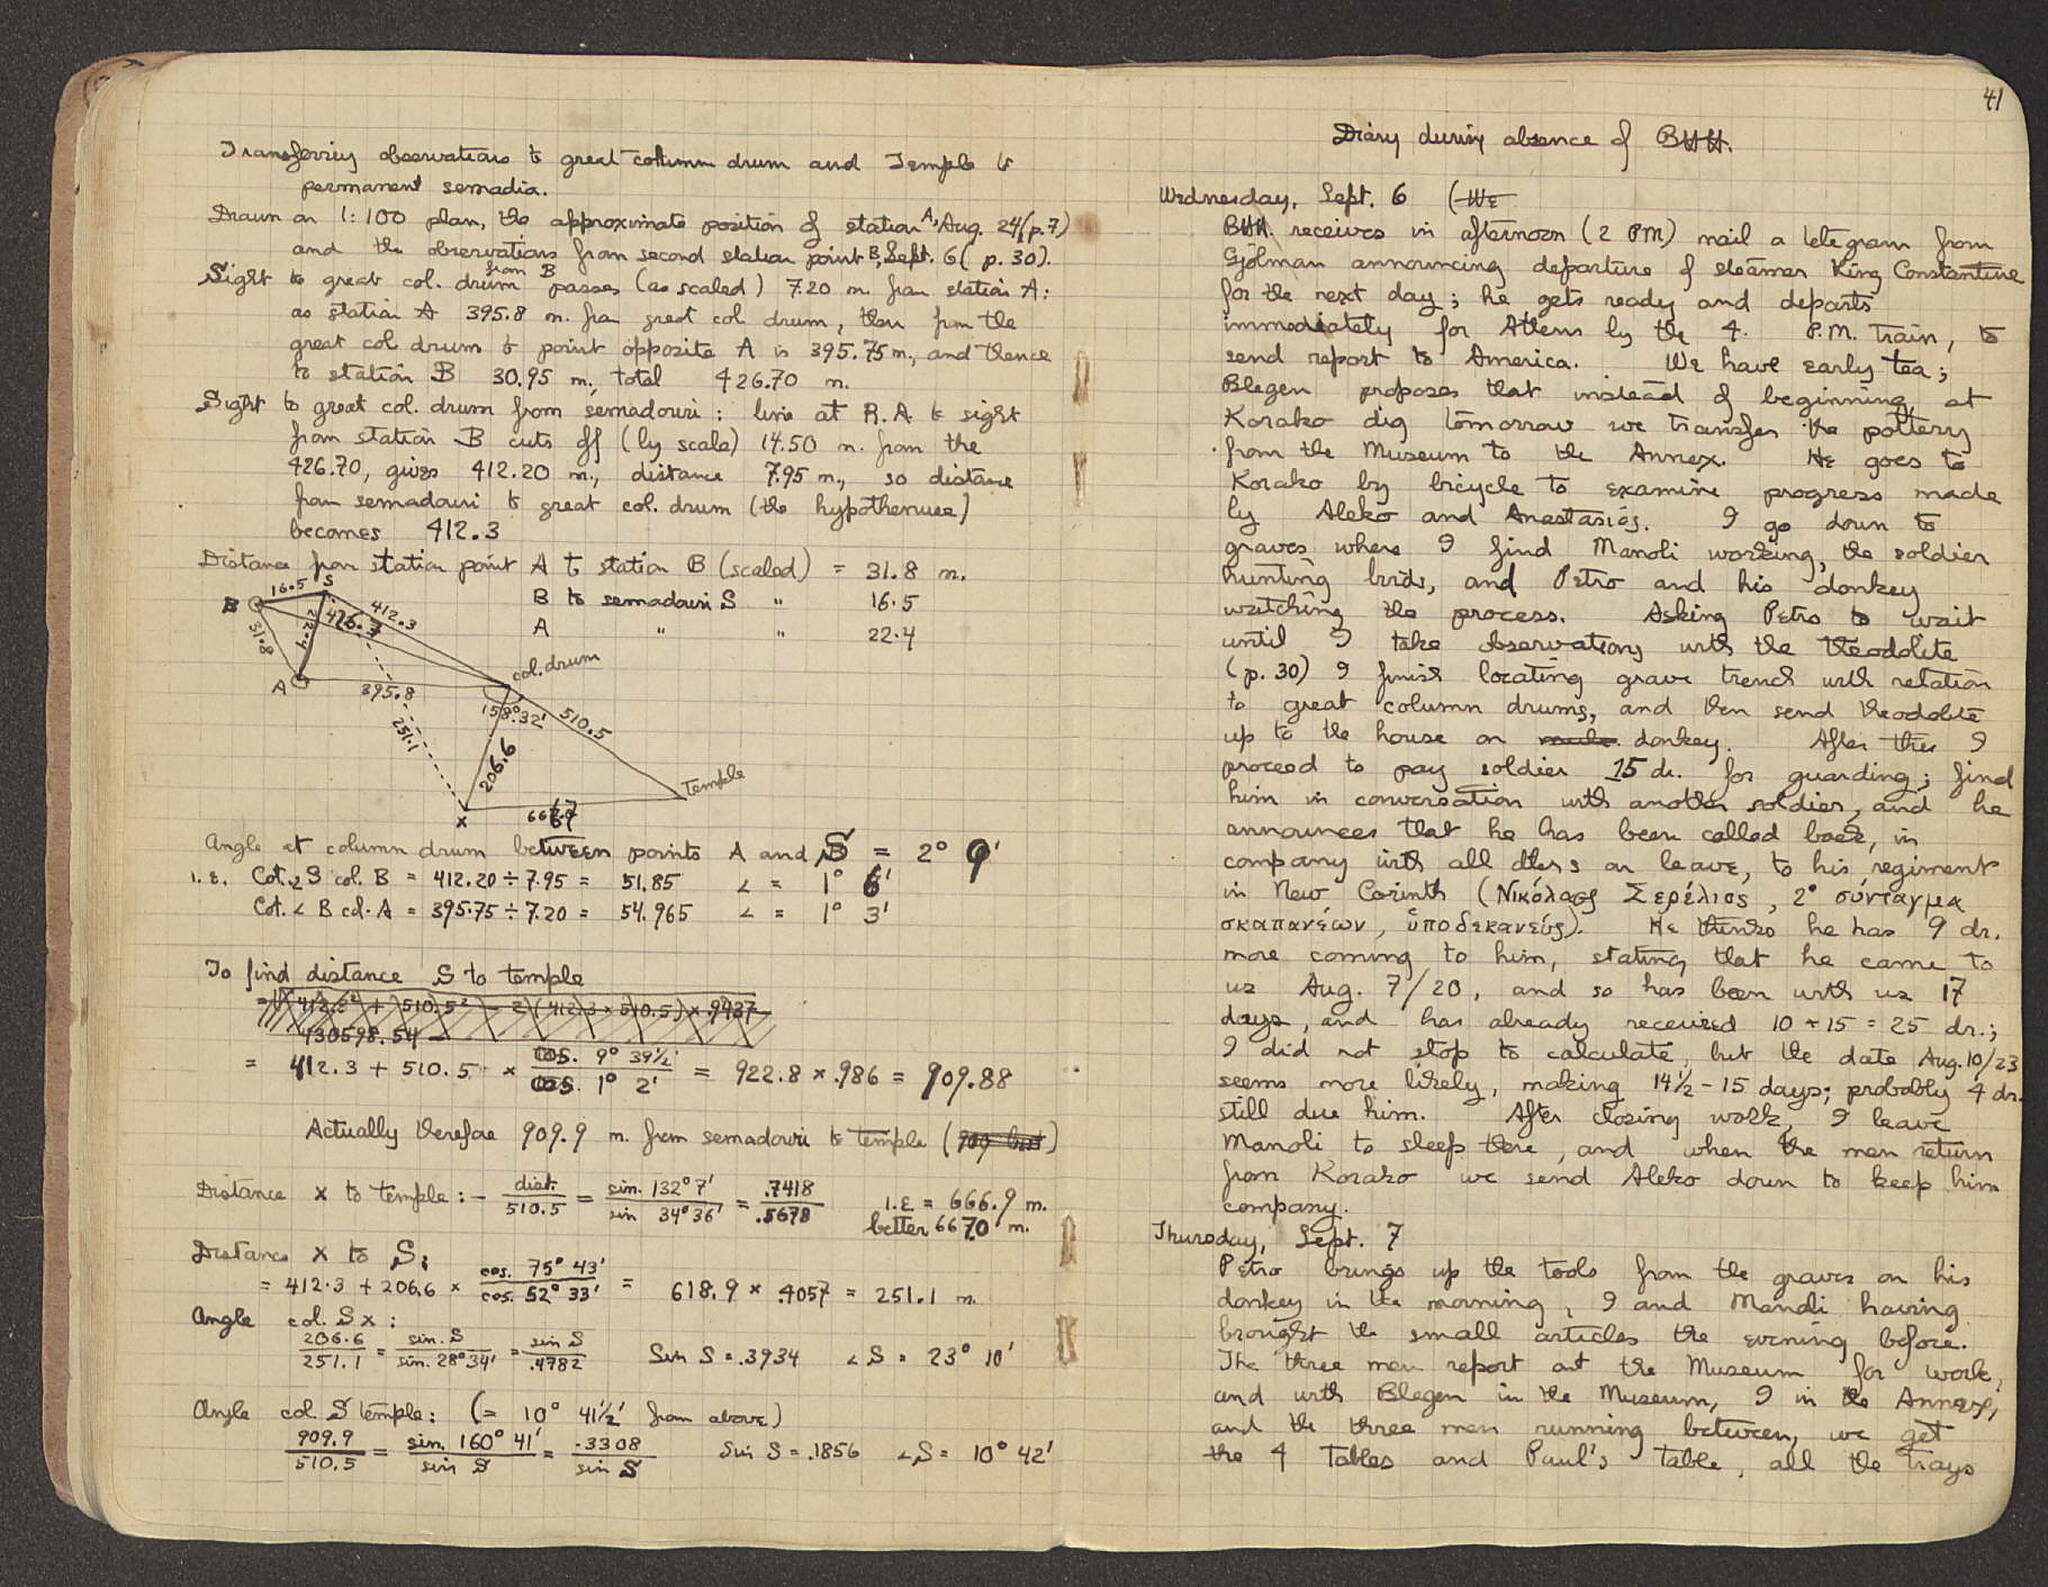 Transferring observations to great column drum and Temple to
permanent semadia.
Drawn on 1:100 plan, the approximate position of station A, Aug. 24 (p.7)
and the observations from second station point B, Sept. 6 (p. 30).
Sight to great col. drum from B passes (as scaled) 7.20 m. from station A:
as station A 395.8 m. from great col drum, then from the
great col drum to point opposite A is 395.75 m., and thence
to station B 30.95 m., total 426.70 m.
Sight to great col. drum from semadouri: line at R.A. to sight
from station B cuts off (by scale) 14.50 m. from the
426.70, gives 412.20 m., distance 7.95 m., so distance
from semadouri to great col. drum (the hypothenuse)
becomes 412.3
Distance from station point A to station B (scaled) = 31.8 m.
B to semadouri S " 16.5
A " " 22.4
16.5 S
B 426.7 412.3
31.8 22.4
A 395.8 col. drum
158°.32' 510.5
251.1 206.6
Temple
x 667
Angle at column drum between points A and S = 2° 9'
i.e. Cot. ∠ S col. B = 412.20 ÷ 7.95 = 51.85 ∠ = 1° 6'
Cot. ∠ B col. A = 395.75 ÷ 7.20 = 54.965 ∠ = 1° 3'
To find distance S to temple
= √412.3² + 510.5² - 2(412.3 × 510.5) × .9937
430598.54 -
= 412.3 + 510.5 × cos. 9° 39½' / cos. 1° 2' = 922.8 × .986 = 909.88
Actually therefore 909.9 m. from semadouri to temple
Distance x to temple: - dist. / 510.5 = sin. 132° 7' / sin 34° 36' = .7418 / .5678 i.e = 666.9 m.
better 667.0 m.
Distance x to S:
= 412.3 + 206.6 × cos. 75° 43' / cos. 52° 33' = 618.9 × .4057 = 251.1 m.
Angle col. S x:
206.6 / 251.1 = sin. S / sin. 28° 34' = sin S / .4782 Sin S = .3934 ∠ S = 23° 10'
Angle col. S temple: (= 10° 41½' from above)
909.9 / 510.5 = sin. 160° 41' / sin S = .3308 / sin S Sin S = .1856 ∠S = 10° 42'
41
Diary during absence of BHH.
Wednesday, Sept. 6 (WE
BHH. receives in afternoon (2 PM) mail a telegram from
Gjölman announcing departure of steamer King Constantine
for the next day; he gets ready and departs
immediately for Athens by the 4. P.M. train, to
send report to America. We have early tea;
Blegen proposes that instead of beginning at
Korako dig tomorrow we transfer the pottery
from the Museum to the Annex. He goes to
Korako by bicycle to examine progress made
by Aleko and Anastasiós. I go down to
graves where I find Manoli working, the soldier
hunting birds, and Petro and his donkey
watching the process. Asking Petro to wait
until I take observations with the theodolite
(p. 30) I finish locating grave trench with relation
to great column drums, and then send theodolite
up to the house on mule donkey. After this I
proceed to pay soldier 15 dr. for guarding; find
him in conversation with another soldier, and he
announces that he has been called back, in
company with all others on leave, to his regiment
in New Corinth (Νικόλαος Σερέλιος, 2° σύνταγμα
σκαπανέων, ὑποδεκανεύς). He thinks he has 9 dr.
more coming to him, stating that he came to
us Aug. 7/20, and so has been with us 17
days, and has already received 10 + 15 = 25 dr.;
I did not stop to calculate, but the date Aug. 10/23
seems more likely, making 14½ - 15 days; probably 4 dr.
still due him. After closing work, I leave
Manoli to sleep there, and when the men return
from Korako we send Aleko down to keep him
company.
Thursday, Sept. 7
Petro brings up the tools from the graves on his
donkey in the morning, I and Manoli having
brought the small articles the evening before.
The three men report at the Museum for work,
and with Blegen in the Museum, I in the Annex,
and the three men running between, we get
the 4 tables and Paul's table, all the trays